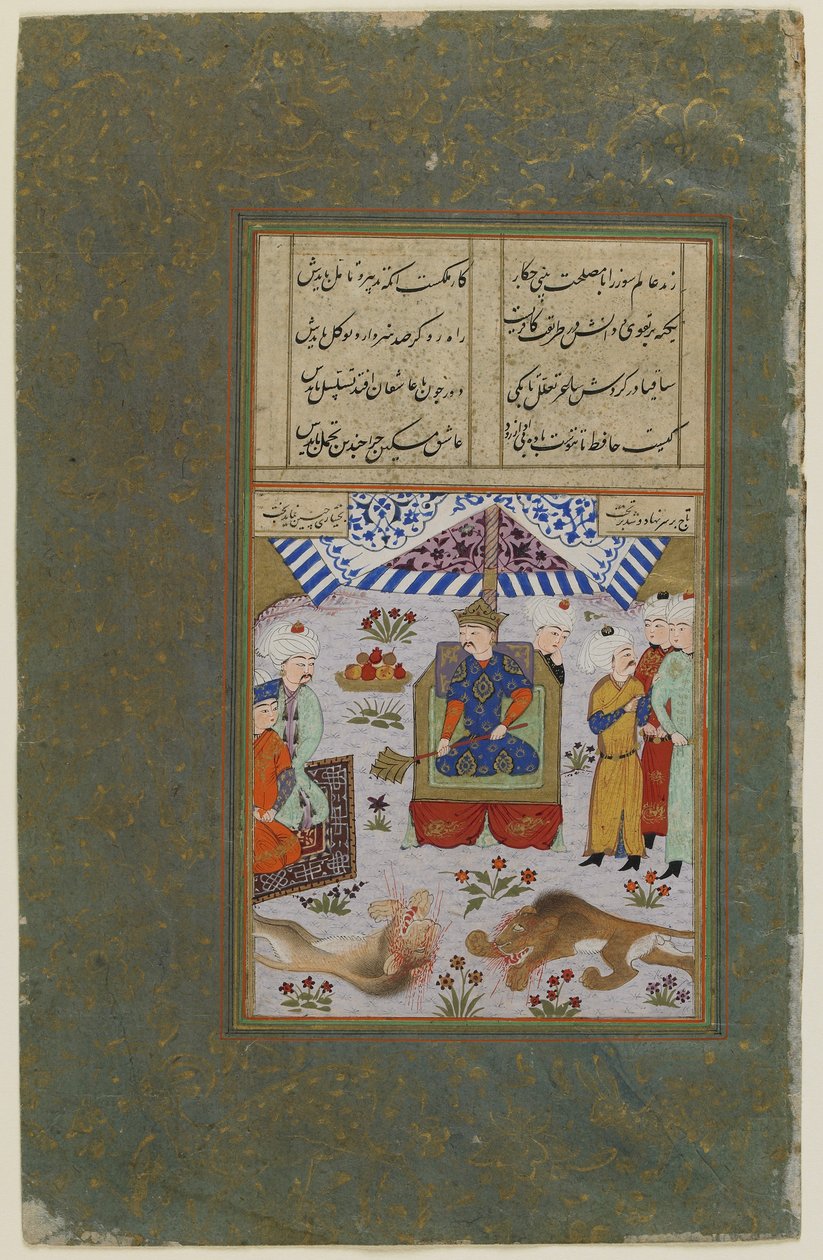 رند عالم سوز را با مصلحت بینی چکار کار ملکست آنکه تدبیر و تامل بایدش
تکیه بر تقوی و دانش در طریقت کافریست راه رو گر صد هنر دارد توکل بایدش
ساقیا در گردش ساغر تعلل تا بکی دور چون با عاشقان افتد تسلسل بایدش
کیست حافظ تا ننوشد باده بی آواز رود عاشق مسکین چرا چندین تجمل بایدش
تاج بر سر نهاد و شد بر تخت بختیاری چنین نماید بخت